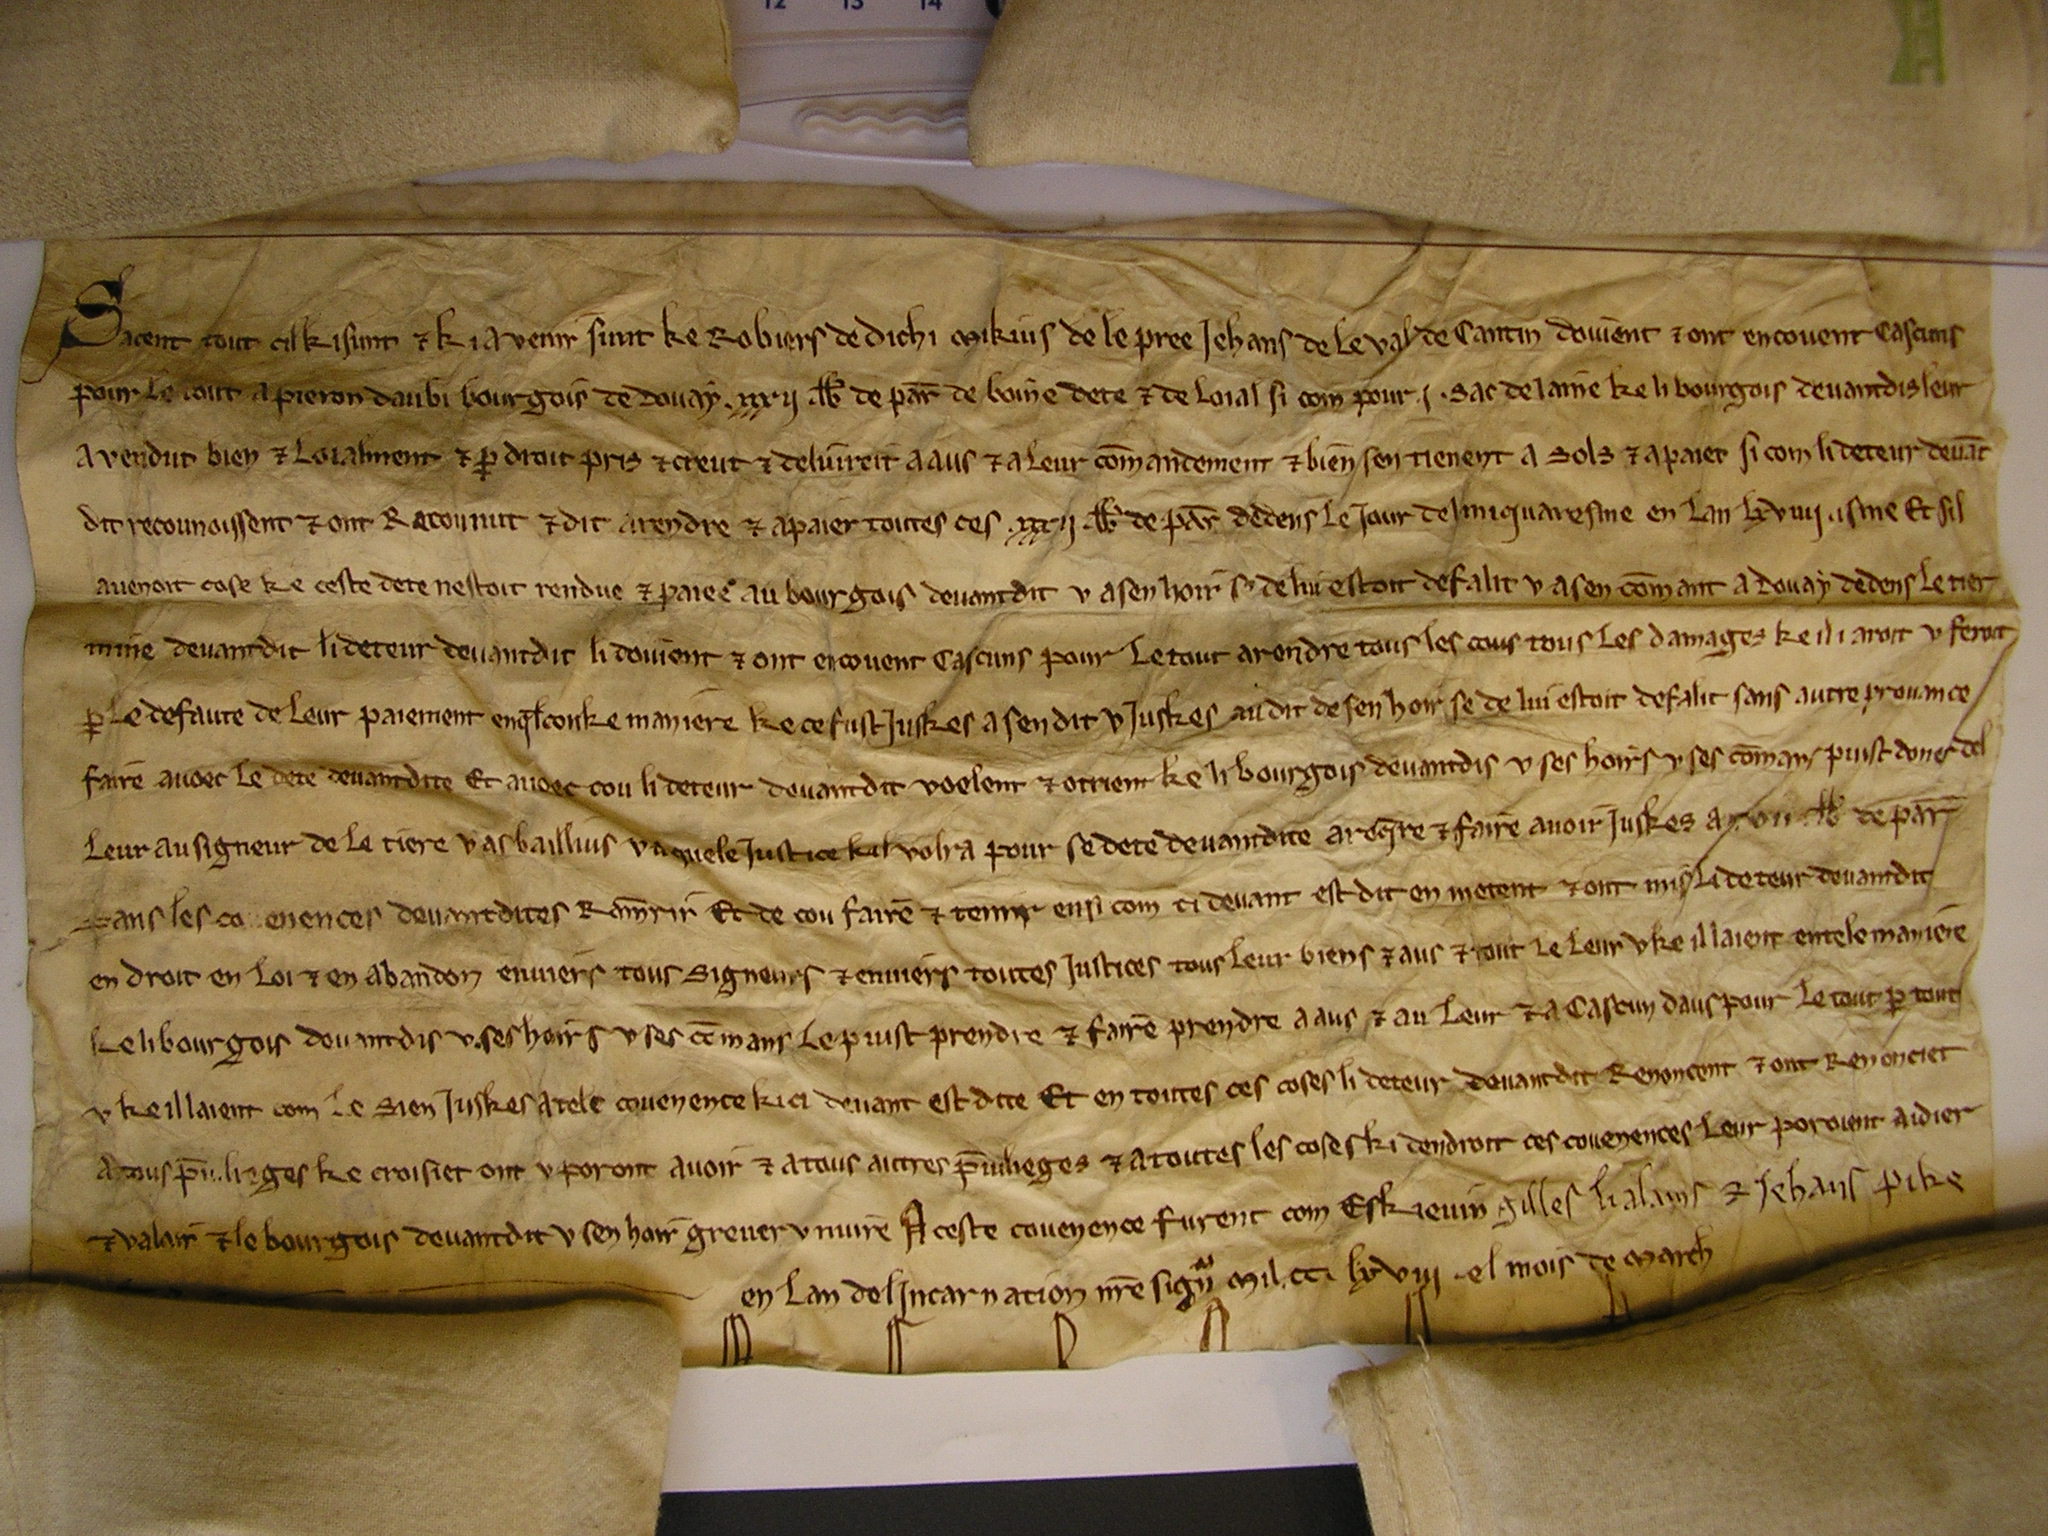 12 13 14
Sacent tout cil ki sunt ⁊ ki avenir sunt ke Robiers de dichi Mikius de le pree Jehans de le val de Cantin doivent ⁊ ont encovent Cascuns
pour le tout a pieron daubi bourgois de douay .xxxii. lb̄ de par̄ de boine dete ⁊ de loial si com pour .j. sac de laine ke li bourgois devantdis leur
a vendut bien ⁊ Loialment ⁊ p̱ droit pris ⁊ creut ⁊ delivreit a aus ⁊ a leur com̄andement ⁊ bien sen tienent a sols ⁊ a paiet si com li deteur devāt
dit reconnoissent ⁊ ont Raconnut ⁊ dit a rendre ⁊ a paier toutes ces .xxxii. lb̄ de par̄ dedens le Jour de lmiquaresme en Lan lxviiij. isme Et sil
avenoit cose ke ceste dete nestoit rendue ⁊ paiee au bourgois devantdit v a sen hoir se de lui estoit defalit v a sen com̄ant a douay dedens le tier
mine devantdit li deteur devantdit li doivent ⁊ ont encovent Cascuns pour Le tout a rendre tous les cous tous Les damages ke il i aroit v feroit
p̱ Le defaute de leur paiement en ql̄conke maniere ke ce fust Juskes a sen dit v Juskes au dit de sen hoir se de lui estoit defalit sans autre provance
faire avoec Le dete devantdite Et avoec cou li deteur devantdit voelent ⁊ otrient ke li bourgois devantdis v ses hoirs v ses com̄ans puist doner del
Leur au signeur de le tiere v as baillius v a quele Justice kil volra pour se dete devantdite a req̄rre ⁊ faire avoir Juskes a lb̄ de par̄
sans les devantdites Ram̄rir Et de cou faire ⁊ tenir ensi com ci devant est dit en metent ⁊ ont mis li deteur devantdit
en droit en Loi ⁊ en abandon enviers tous Signeurs ⁊ enviers toutes Justices tous Leur biens ⁊ aus ⁊ tout le Leur v ke il laient en tele maniere
ke li bourgois devantdis v ses hoirs v ses com̄ans Le puist prendre ⁊ faire prendre a aus ⁊ au Leur ⁊ a Cascun daus pour Le tout p̱ tout
v ke il laient com Le Sien Juskes a tele covenence ki ci devant est dite Et en toutes ces coses li deteur devantdit Renoncent ⁊ ont Renonciet
a tous p̄vilieges ke croisiet ont v poront avoir ⁊ a tous autres p̄vilieges ⁊ a toutes les coses ki dendroit ces covenences Leur poroient aidier
⁊ valoir ⁊ le bourgois devantdit v sen hoir grever v nuire A ceste covenence furent com Eskievin Gilles li alains ⁊ Jehans pike
en Lan del Incarnation nr̄e sign̄ Mil. cc. lxviij. el mois de March